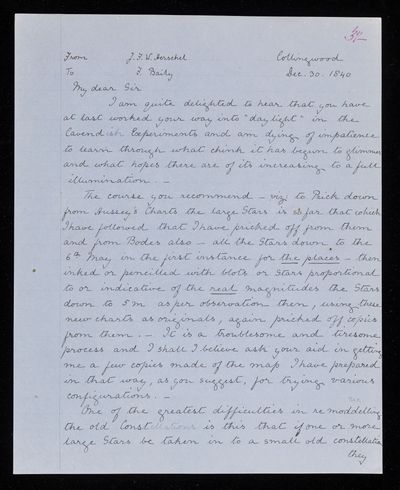 From J. F. W. Herschel Collingwood
To F. Baily Dec. 30. 1840
My dear Sir
I am quite delighted to hear that you have
at last worked your way into "daylight" in the
Cavendish Experiments and am dying of impatience
to learn through what chink it has begun to glimmer
and what hopes there are of its increasing to a full
illumination. -
The course you recommend - viz to Prick down
from Hussey's Charts the large Stars is so far that which
I have followed that I have pricked off from them
and from Bodes also - all the Stars down to the
6th Mag in the first instance for the places - then
inked or pencilled with blots or Stars proportional
to or indicative of the real magnitudes the Stars
down to 5m as per observation then, using these
new charts as originals, again pricked off copies
from them. - It is a troublesome and tiresome
process and I shall I believe ask your aid in getting
me a few copies made of the map I have prepared
in that way, as you suggest, for trying various
configurations. -
One of the greatest difficulties in re modelling
the old Constellations is this that if one or more
large Stars be taken in to a small old constellation
they